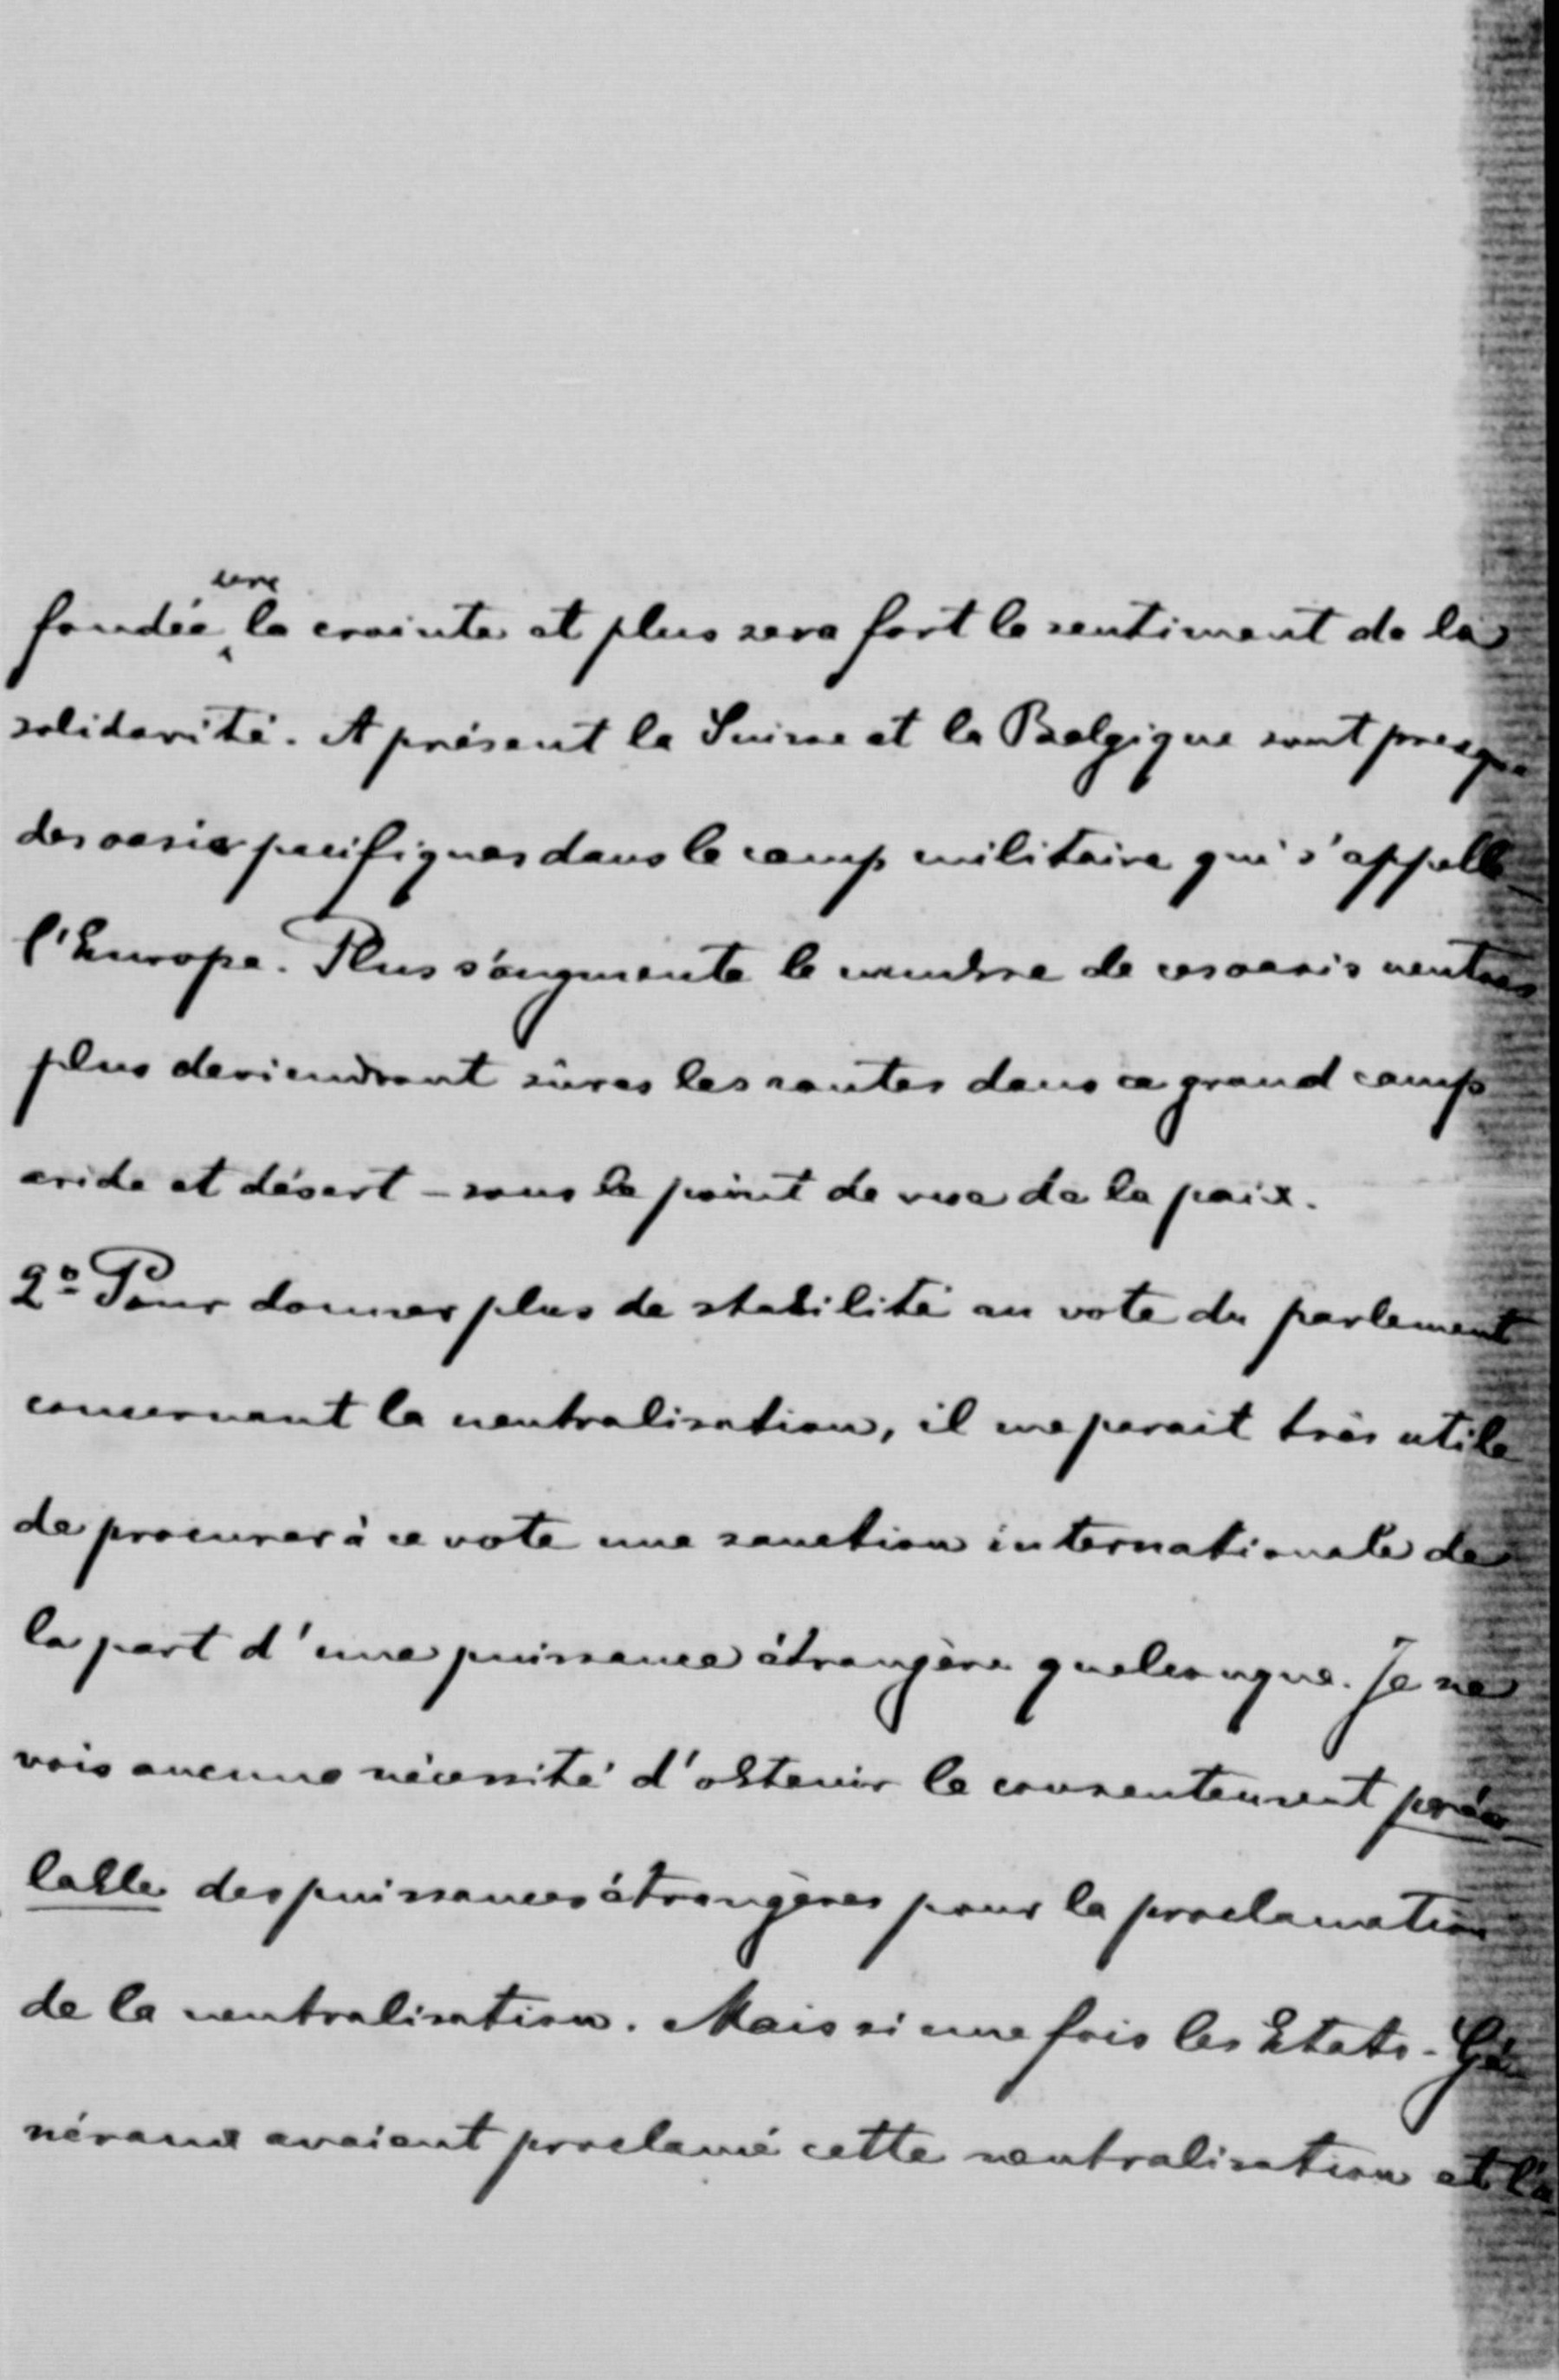 fondée sera la crainte et plus sera fort le sentiment de la
solidarité. A présent la Suisse et la Belgique sont presque
des oasis pacifiques dans le camp militaire qui s'appelle
l'Europe. Plus s'augmente le nombre de ces oasis neutres
plus deviendront sûres les routes dans ce grand camp
aride et désert – sous le point de vue de la paix.
2º Pour donner plus de stabilité au vote du parlement
concernant la neutralisation, il me parait très utile
de procurer à ce vote une sanction internationale de
la part d'une puissance étrangère quelconque. Je ne
vois aucune nécessité d'obtenir le consentement préa-
lable des puissances étrangères pour la proclamation
de la neutralisation. Mais si une fois les Etats-Gé-
néraux avaient proclamé cette neutralisation et l'a